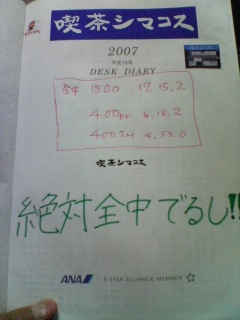 喫茶シマコス
2007
平成19年
DESK DIARY
全中 1500 17.15.2
400Fr 4.15.2
400IM 4.53.0
喫茶シマコス
絶対全中でるし!!
ANA
A STAR ALLIANCE MEMBER